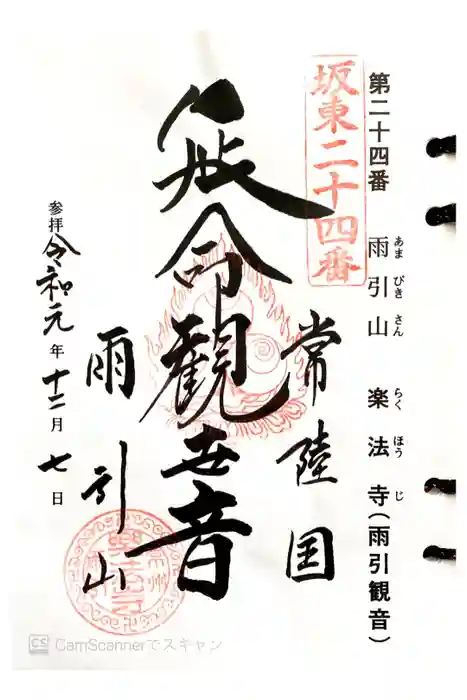 第二十四番 雨引山 楽法寺(雨引観音)
あま びき さん らく ほう じ
坂東二十四番
常陸国
延命観世音
雨引山
参拝 令和元年 十二月 七日
CS CamScannerでスキャン